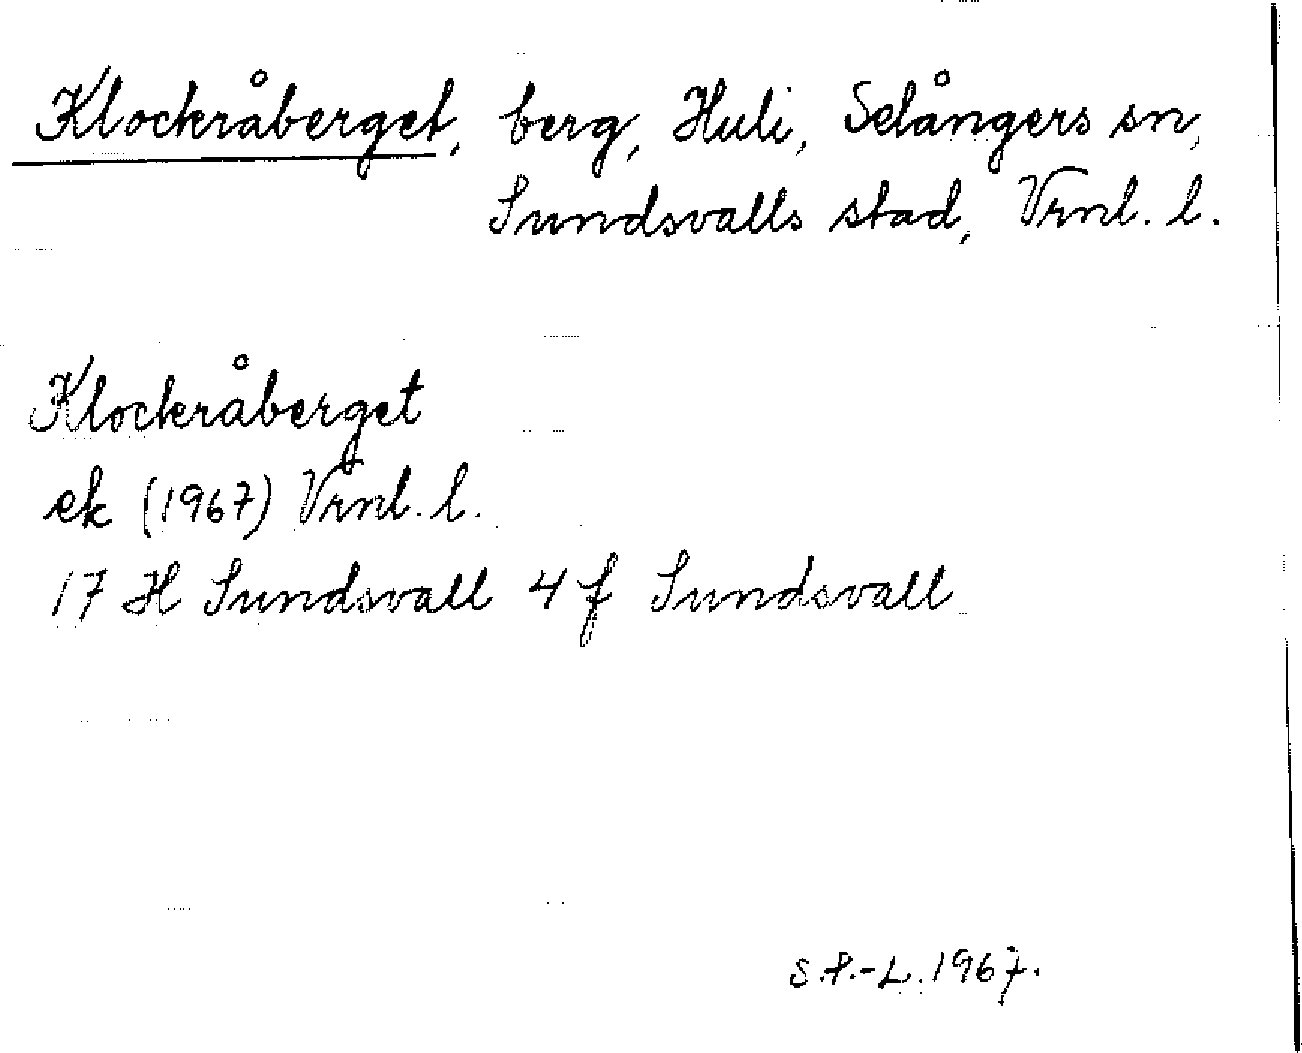 Klockråberget, berg, Huli, Selångers sn,
Sundsvalls stad, Vrnl. l.
Klockråberget
ek (1967) Vrnl. l.
17 H Sundsvall 4 f Sundsvall
S.P.-L. 1967.